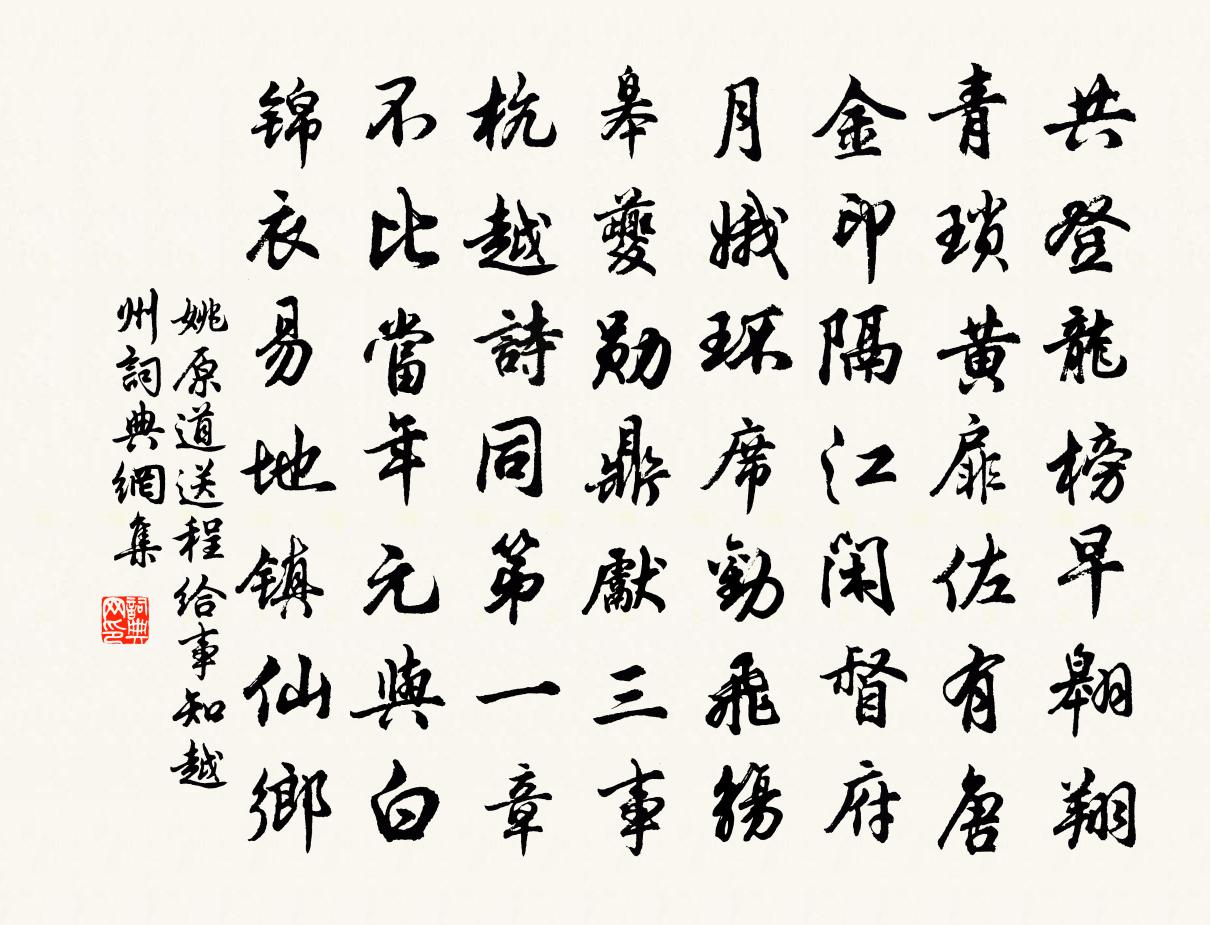 共登龍榜早翱翔
青瑣黃扉佐有唐
金印隔江閑督府
月娥環席勸飛觴
皋夔勛鼎獻三事
杭越詩同第一章
不比當年元與白
錦衣易地鎮仙鄉
姚原道送程給事知越
州詞典網集